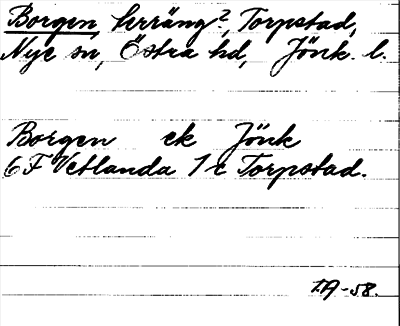 Borgen, herräng?, Torpstad,
Nye sn, Östra hd, Jönk. l.
Borgen ek Jönk
6F Vetlanda 1c Torpstad.
T.A-58.